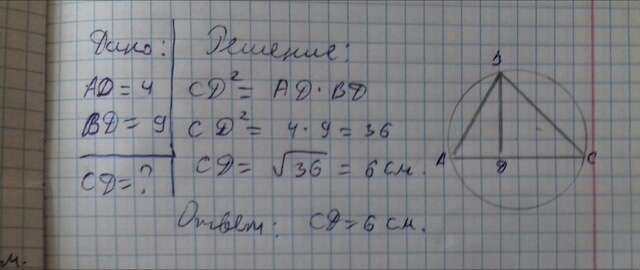 Дано:
AD = 4
BD = 9
CD = ?
Решение:
CD² = AD · BD
CD² = 4 · 9 = 36
CD = √36 = 6 см.
Ответ: CD = 6 см.
A
D
C
м.